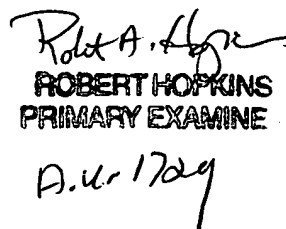 Robert A. Hopkins
ROBERT HOPKINS
PRIMARY EXAMINE
A.U. 1724